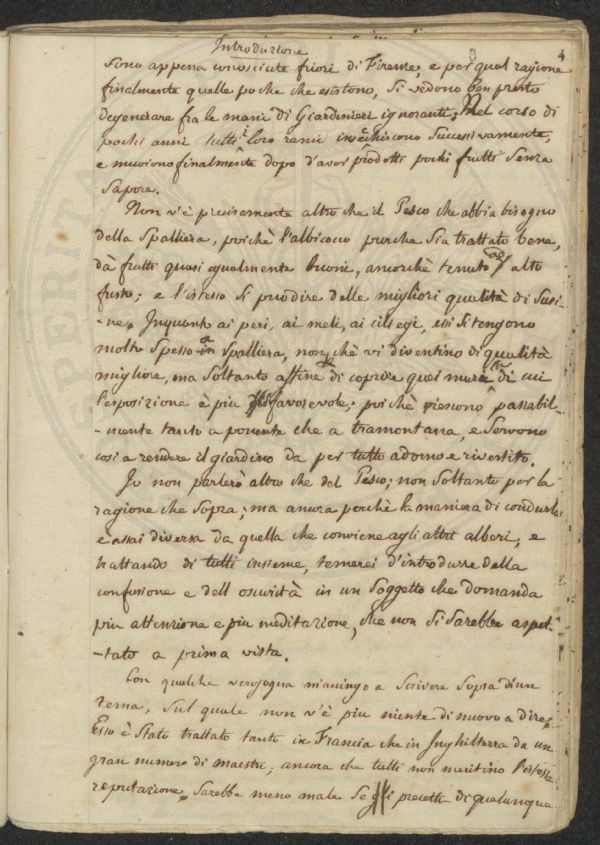 Introduzione
4
sono appena conosciute fuori di Firenze, e per qual ragione
finalmente quelle poche che esistono, si vedono ben presto
degenerare fra le mani di Giardinieri ignoranti; Nel corso di
pochi anni tutti i loro rami invechiscono successivamente,
e muoiono finalmente dopo d'aver prodotti pochi frutti senza
sapore.
Non v'è precisamente altro che il Pesco che abbia bisogno
della Spalliera, poichè l'albicocco purche sia trattato bene,
dà frutti quasi egualmente buoni, ancorchè tenuto ad alto
fusto; e l'istesso si può dire delle migliori qualità di Susi-
-ne. Inquanto ai peri, ai meli, ai ciliegi, essi si tengono
molto spesso a Spalliera, non chè vi diventino di qualità
migliore, ma soltanto affine di coprire quei muri di cui
l'esposizione è più favorevole; poichè riescono passabil-
-mente tanto a ponente che a tramontana, e servono
così a rendere il giardino da per tutto adorno e rivestito.
Io non parlerò altro che del Pesco; non soltanto per la
ragione che sopra; ma ancora perchè la maniera di condurlo
è assai diversa da quella che conviene agli altri alberi; e
trattando di tutti insieme, temerei d'introdurre della
confusione e dell oscurità in un soggetto che domanda
più attenzione e più meditazione, che non si sarebbe aspet-
-tato a prima vista.
Con qualche vergogna m'accingo a scrivere sopra d'un
tema, sul quale non v'è più niente di nuovo a dire.
Esso è stato trattato tanto in Francia che in Inghilterra da un
gran numero di maestri; ancora che tutti non meritino l'istessa
reputazione. Sarebbe meno male se i precetti di qualunque